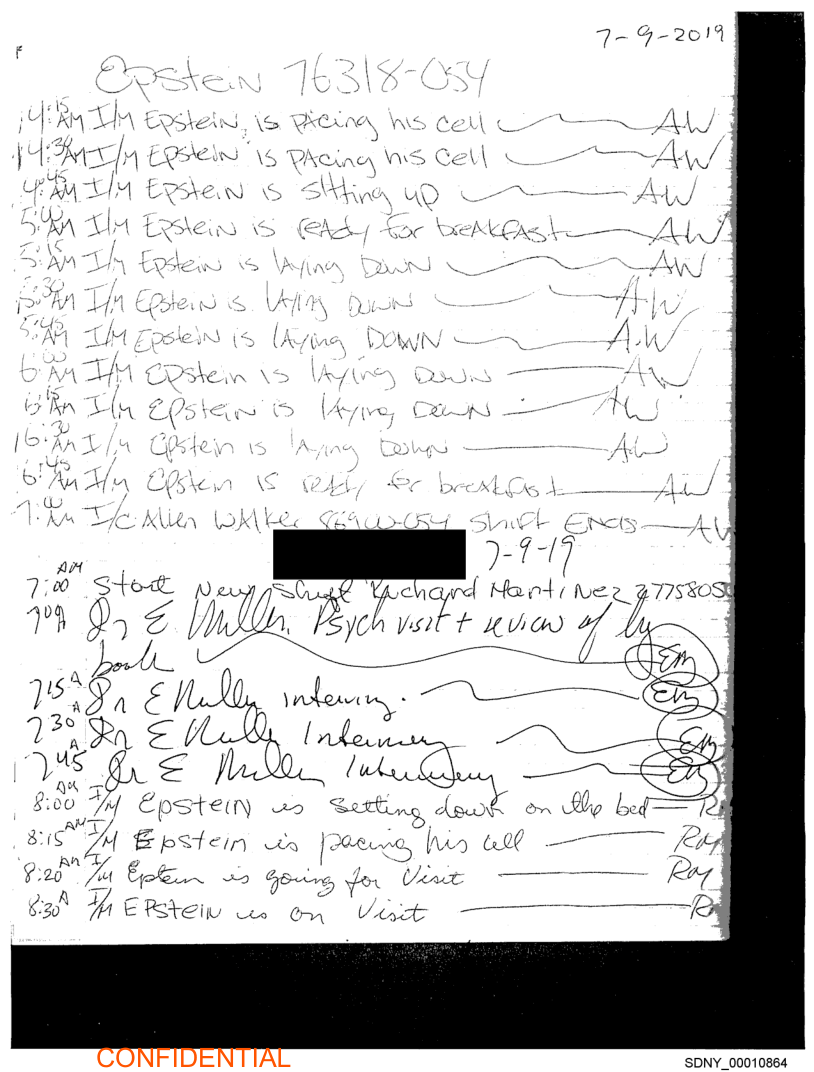 7-9-2019
F
Epstein 76318-054
4:15 AM I/M Epstein is pacing his cell AW
4:30 AM I/M Epstein is pacing his cell AW
4:45 AM I/M Epstein is sitting up AW
5:00 AM I/M Epstein is ready for breakfast AW
5:15 AM I/M Epstein is laying Down AW
5:30 AM I/M Epstein is laying Down AW
5:45 AM I/M Epstein is laying DOWN A.W
6:00 AM I/M Epstein is laying Down AW
6:15 AM I/M Epstein is laying Down AW
6:30 AM I/M Epstein is laying Down AW
6:45 AM I/M Epstein is ready for breakfast AW
7:00 AM I/C Allen Walker 86900-054 Shift Ends AW
7-9-19
7:00 AM Start New Shift Richard Martinez
7 09 A Dr E Miller. Psych visit + review of log
book EM
7 15 A Dr E Miller interview. EM
7 30 A Dr E Miller Interview EM
7 45 A Dr E Miller Interview EM
8:00 AM I/M Epstein is setting down on the bed R
8:15 AM I/M Epstein is pacing his cell
8:20 AM I/M Eptein is going for Visit
8:30 A I/M EPStein is on Visit R
CONFIDENTIAL
SDNY_00010864